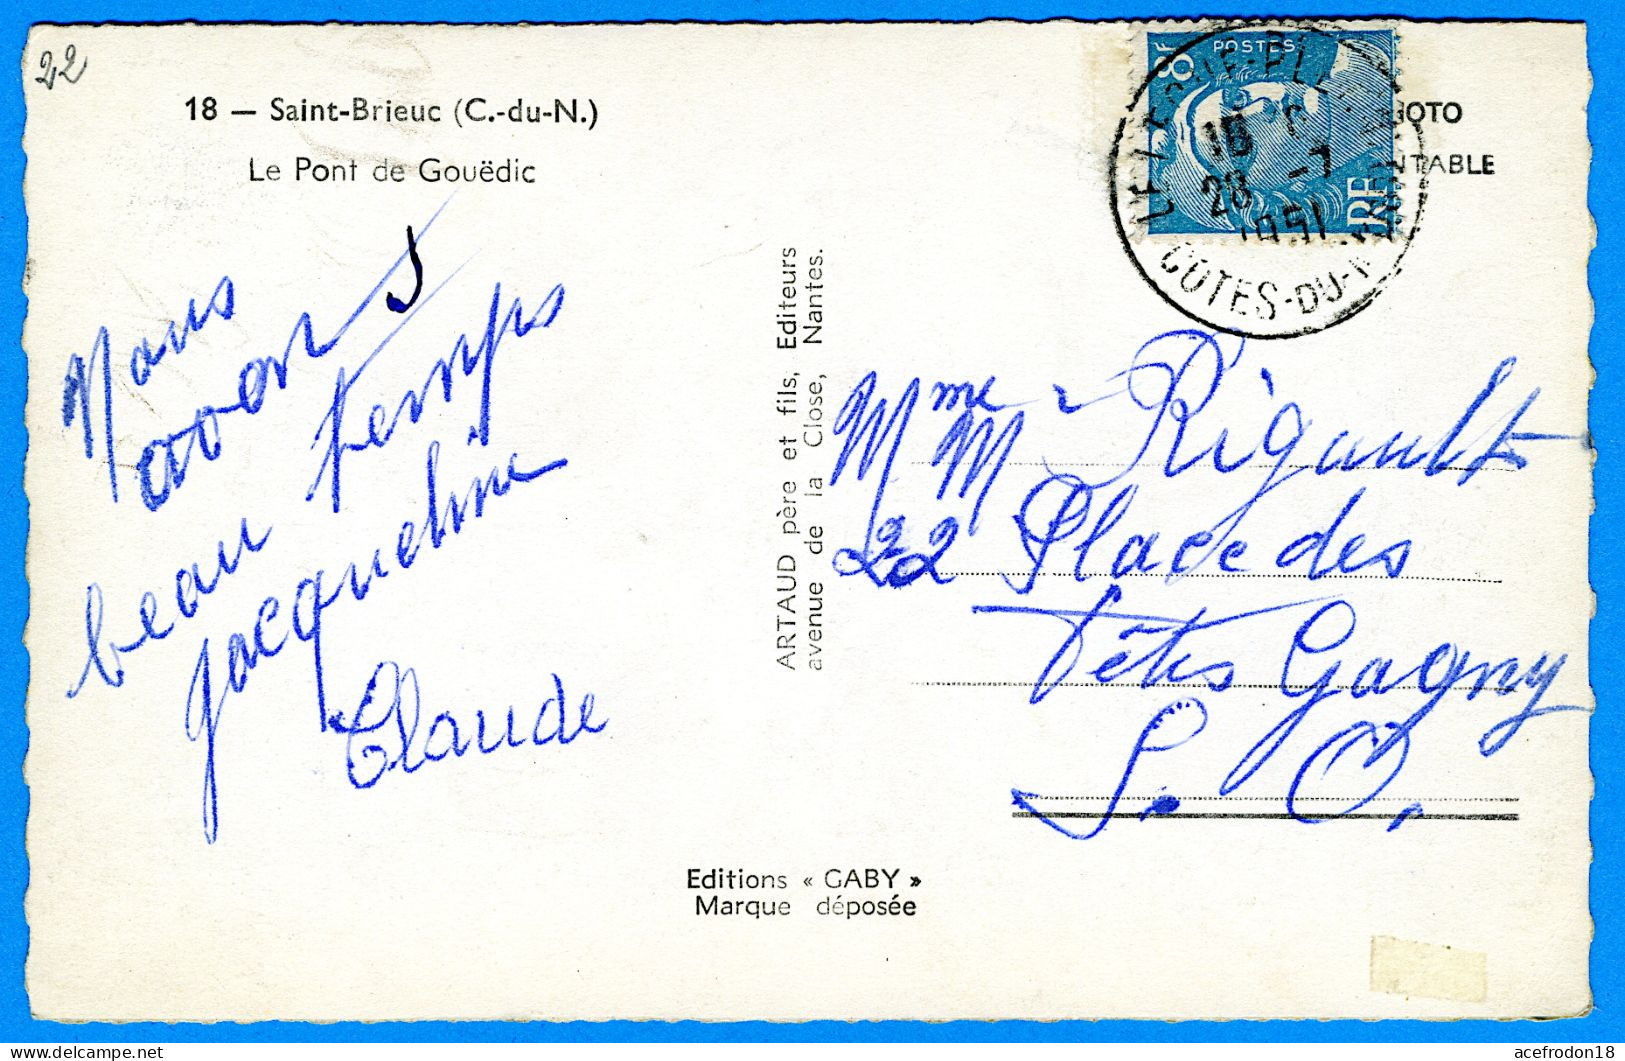 22
18 — Saint-Brieuc (C.-du-N.)
Le Pont de Gouëdic
Nous
avons
beau temps
Jacqueline
Claude
ARTAUD père et fils, Editeurs
avenue de la Close, Nantes.
Editions « GABY »
Marque déposée
POSTES
8F
RF
18
28 -7
1951
COTES-DU-N
OTO
NTABLE
Mme M Rigault
22 Place des
Fêtes Gagny
S. O.
acefrodon18